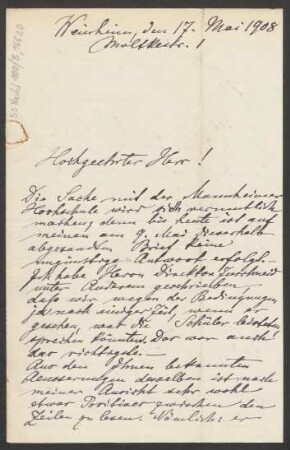 Weinheim, den 17. Mai 1908
Moltkestr. 1
Hochgeehrter Herr!
Die Sache mit der Mannheimer
Hochschule wird sich vermutlich
machen, denn bis heute ist auf
meinen am 9. Mai dieserhalb
abgesandten Brief keine
Antwort erfolgt.
Ich habe Herrn Direktor
unter Anderem geschrieben,
daß wir wegen der Bedingungen
ja nach einiger Zeit, wenn er
gesehen, was die Schüler
sprechen könnten. Das war auch
das richtige. —
Aus den Ihnen bekannten
Aeusserungen desselben ist nach
meiner Ansicht sehr wohl
etwas Positives zwischen den
Zeilen zu lesen. Nämlich: er